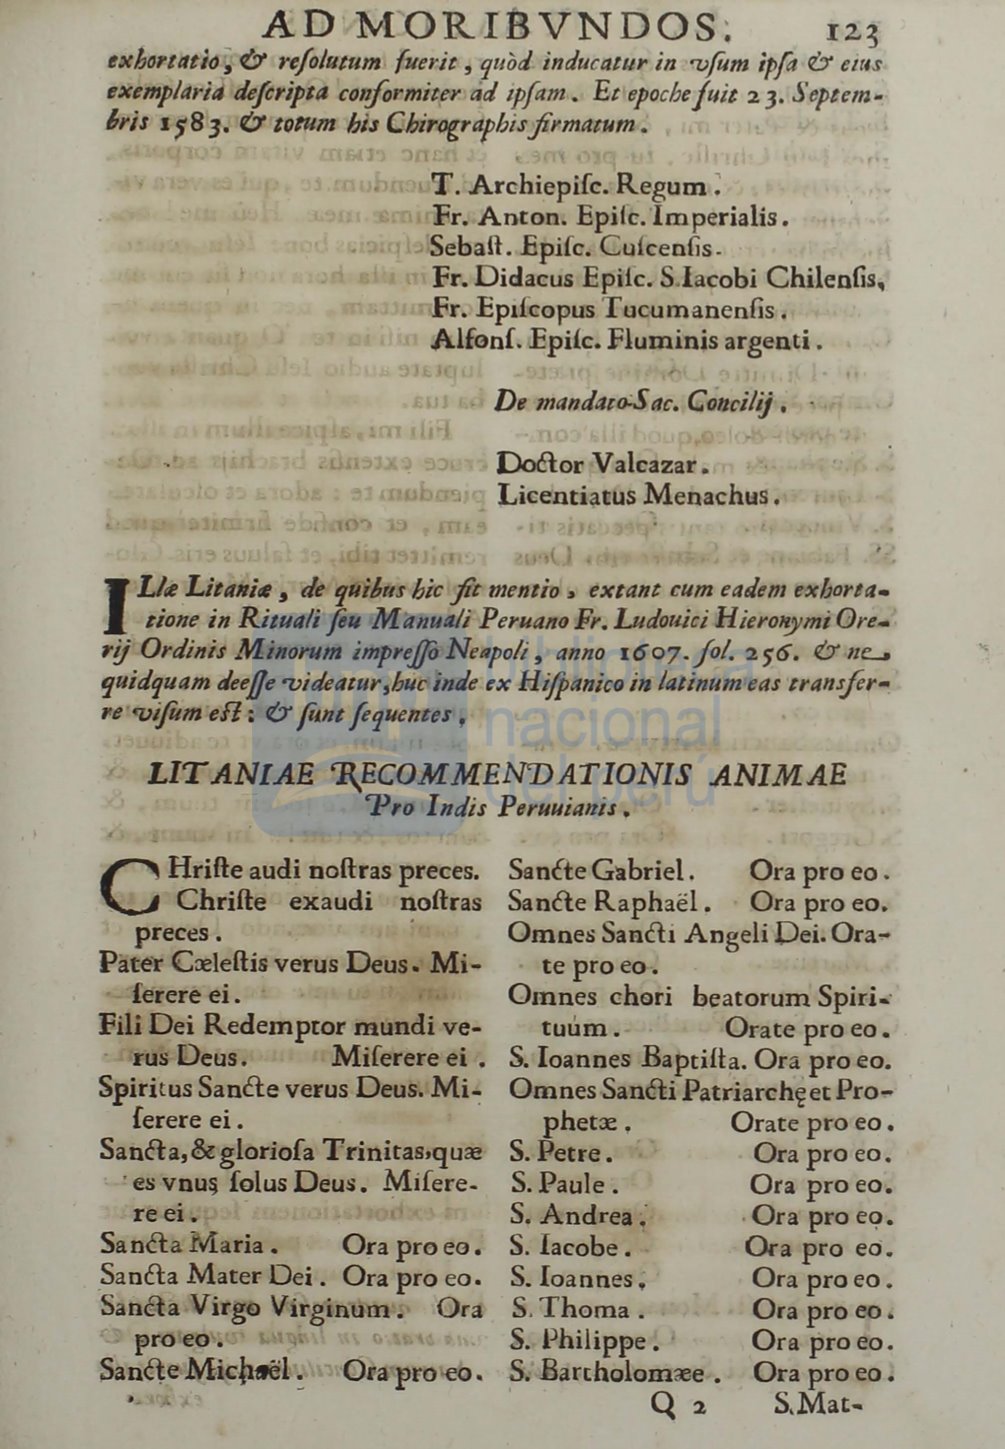 AD MORIBVNDOS. 123
exhortatio, & reſolutum fuerit, quòd inducatur in vſum ipſa & eius
exemplaria deſcripta conformiter ad ipſam. Et epoche fuit 23. Septem-
bris 1583. & totum his Chirographis firmatum.
T. Archiepiſc. Regum.
Fr. Anton. Epiſc. Imperialis.
Sebaſt. Epiſc. Cuſcenſis.
Fr. Didacus Epiſc. S. Iacobi Chilenſis,
Fr. Epiſcopus Tucumanenſis.
Alfonſ. Epiſc. Fluminis argenti.
De mandato Sac. Concilij.
Doctor Valcazar.
Licentiatus Menachus.
ILlæ Litaniæ, de quibus hic fit mentio, extant cum eadem exhorta-
tione in Rituali ſeu Manuali Peruano Fr. Ludouici Hieronymi Ore-
rij Ordinis Minorum impreſſo Neapoli, anno 1607. fol. 256. & ne
quidquam deeſſe videatur, huc inde ex Hiſpanico in latinum eas transfer-
re viſum eſt: & ſunt ſequentes.
biblioteca
nacional
del perú
LITANIAE RECOMMENDATIONIS ANIMAE
Pro Indis Peruuianis.
CHriſte audi noſtras preces.
Chriſte exaudi noſtras
preces.
Pater Cæleſtis verus Deus. Mi-
ſerere ei.
Fili Dei Redemptor mundi ve-
rus Deus. Miſerere ei.
Spiritus Sancte verus Deus. Mi-
ſerere ei.
Sancta, & glorioſa Trinitas, quæ
es vnus ſolus Deus. Miſere-
re ei.
Sancta Maria. Ora pro eo.
Sancta Mater Dei. Ora pro eo.
Sancta Virgo Virginum. Ora
pro eo.
Sancte Michaël. Ora pro eo.
Sancte Gabriel. Ora pro eo.
Sancte Raphaël. Ora pro eo.
Omnes Sancti Angeli Dei. Ora-
te pro eo.
Omnes chori beatorum Spiri-
tuum. Orate pro eo.
S. Ioannes Baptiſta. Ora pro eo.
Omnes Sancti Patriarchę et Pro-
phetæ. Orate pro eo.
S. Petre. Ora pro eo.
S. Paule. Ora pro eo.
S. Andrea. Ora pro eo.
S. Iacobe. Ora pro eo.
S. Ioannes. Ora pro eo.
S. Thoma. Ora pro eo.
S. Philippe. Ora pro eo.
S. Bartholomæe. Ora pro eo.
Q 2 S. Mat-